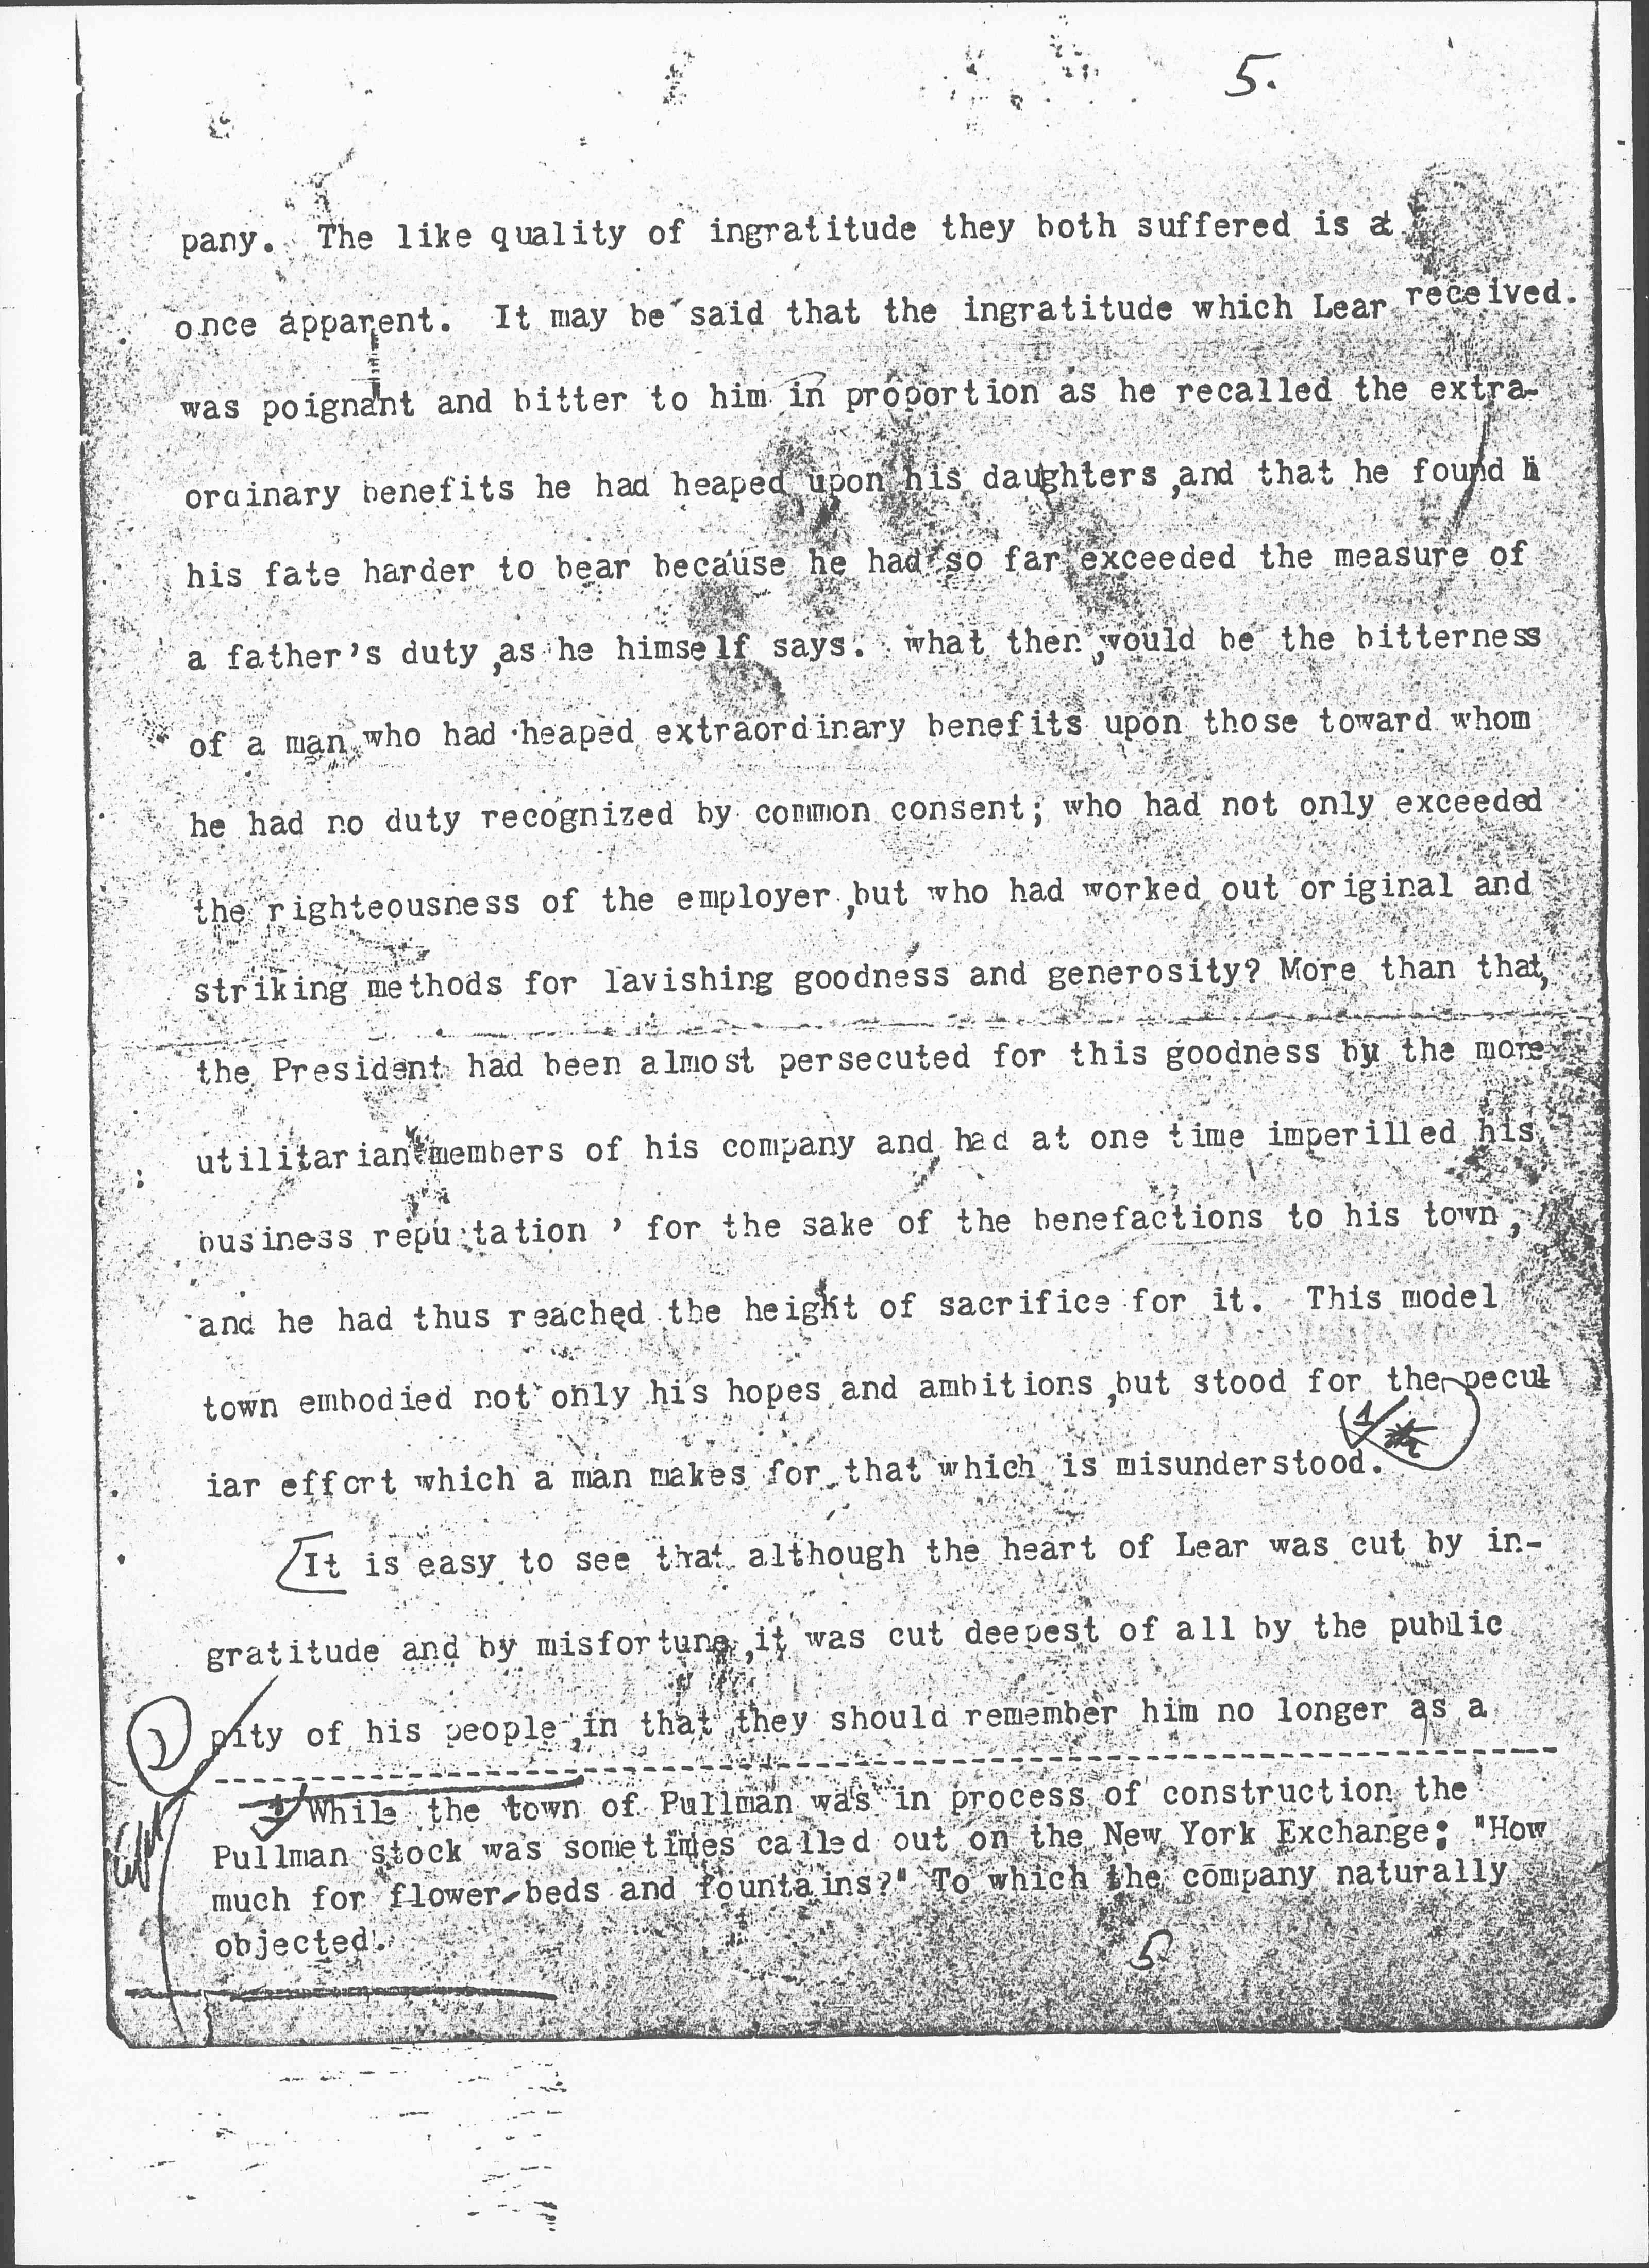 5.
pany. The like quality of ingratitude they both suffered is at
once apparent. It may be said that the ingratitude which Lear received.
was poignant and bitter to him in proportion as he recalled the extra-
ordinary benefits he had heaped upon his daughters ,and that he found h
his fate harder to bear because he had so far exceeded the measure of
a father's duty ,as he himself says. what then ,would be the bitterness
of a man who had heaped extraordinary benefits upon those toward whom
he had no duty recognized by common consent; who had not only exceeded
the righteousness of the employer ,but who had worked out original and
striking methods for lavishing goodness and generosity? More than that,
the President had been almost persecuted for this goodness by the more
utilitarian members of his company and had at one time imperilled his
business reputation , for the sake of the benefactions to his town,
and he had thus reached the height of sacrifice for it. This model
town embodied not only his hopes and ambitions ,but stood for the pecul
1
iar effort which a man makes for that which is misunderstood.
It is easy to see that although the heart of Lear was cut by in-
gratitude and by misfortune ,it was cut deepest of all by the public
pity of his people ,in that they should remember him no longer as a
1 While the town of Pullman was in process of construction the
Pullman stock was sometimes called out on the New York Exchange; "How
much for flower-beds and fountains?" To which the company naturally
objected.
5